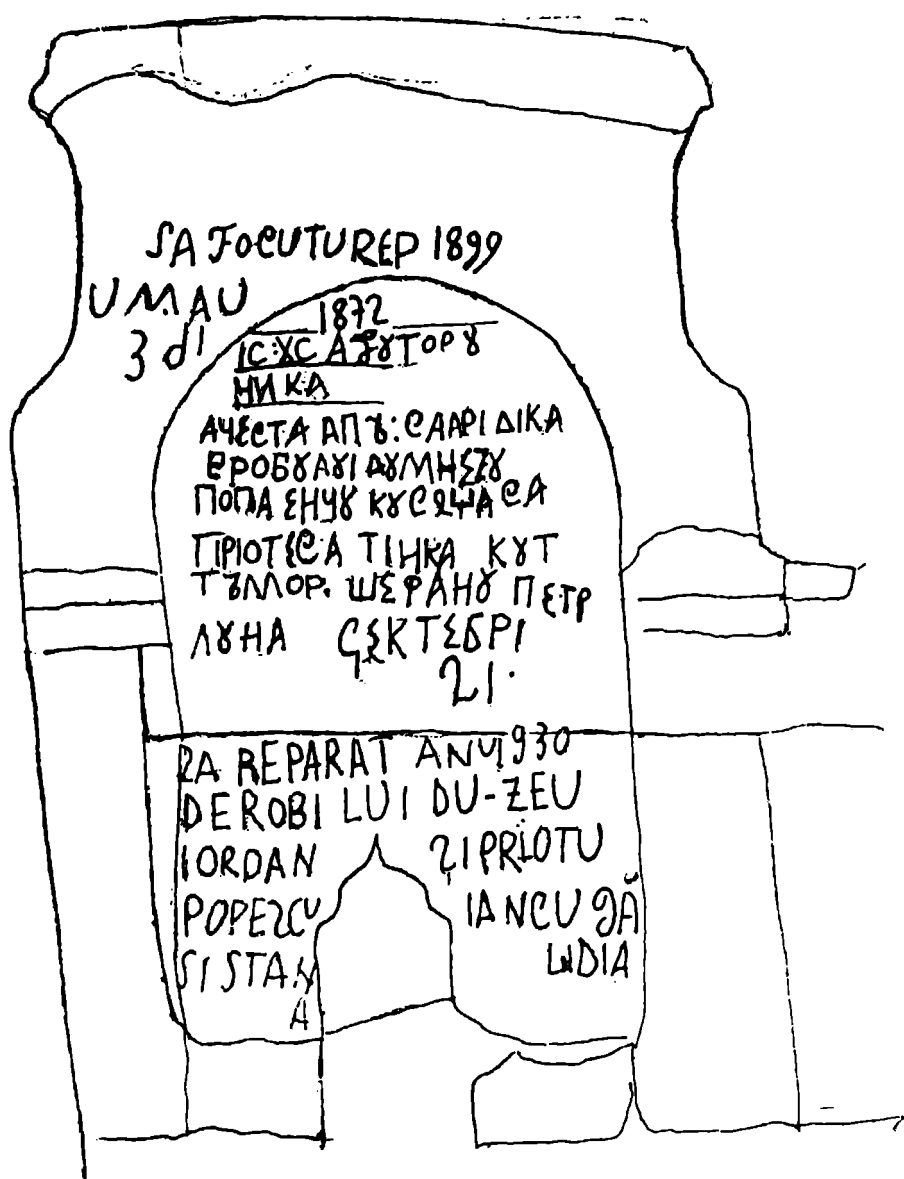 SA FOCUTUREP 1899
UMAU
3 di
1872
IC:XC AЖȣTOPȣ
НИКА
АЧЕСТА АПȣ: САРІДІКА
ЕРОБȣЛȣІ ДȣМНЕZȣ
ПОПА ЕНЧȣ
ПРІОТЕСА ТІНКА КȣТ
ПЕТР
ЛȣНА СЕКТЕБРІ
21.
2A REPARAT ANU 1930
DE ROBI LUI DU-ZEU
IORDAN ȘI PRIOTU
POPEZCU IANCU GĂ
SI STAN UDIA
A